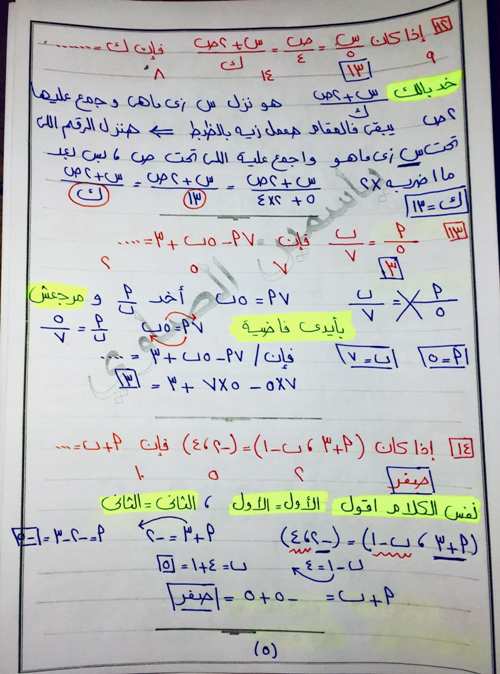 ١٢ إذا كان س/٥ = ص/٤ = س + ٢ص/ك فإن ك = ........
٩ ١٣ ١٤ ٨
خد بالك س + ٢ص/ك هو نزل س زى ماهى وجمع عليها
٢ص يبقى فالمقام هعمل زيه بالظبط ⇐ هنزل الرقم اللى
تحت س زى ماهو واجمع عليه اللى تحت ص ، بس بعد
ما اضربه ×٢ س + ٢ص/٥ + ٢×٤ = س + ٢ص/١٣ = س + ٢ص/ك
ك = ١٣
١٣ P/٥ = ب/٧ فإن ٧P − ٥ب + ٣ = ....
٣ ٧ ٥ ٢
P/٥ = ب/٧ ٧P = ٥ب أخد P/ب ومرجعش
بأيدى فاضية ٧P = ٥ب P/ب = ٥/٧
P = ٥ ب = ٧ فإن / ٧P − ٥ب + ٣ = ....
٧×٥ − ٥×٧ + ٣ = ٣
١٤ إذا كان (P + ٣ ، ب − ١) = (−٢ ، ٤) فإن P + ب = ....
صفر ٢ ٥ ١٠
نفس الكلام اقول الأول = الأول ، الثانى = الثانى
(P + ٣ ، ب − ١) = (−٢ ، ٤) P + ٣ = −٢ P = −٢ − ٣ = −٥
ب − ١ = ٤ ب = ٤ + ١ = ٥
P + ب = −٥ + ٥ = صفر
(٥)
ياسمين الصاوي